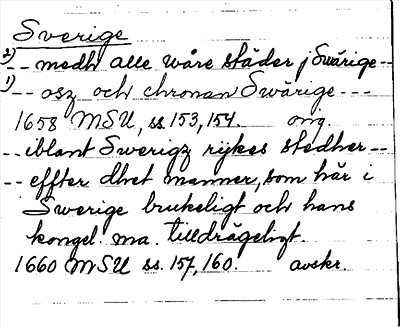 Sverige
2) -- medh alle wåre städer j Swärige --
1) -- osz och chronan Swärige ---
1658 MSU, ss. 153, 154. orig.
-- iblant Swerigz rykes stedher --
-- effter dhet manner, som här i
Swerige brukeligt och hans
kongel. ma. tilldrägeligt.
1660 MSU ss. 157, 160. avskr.